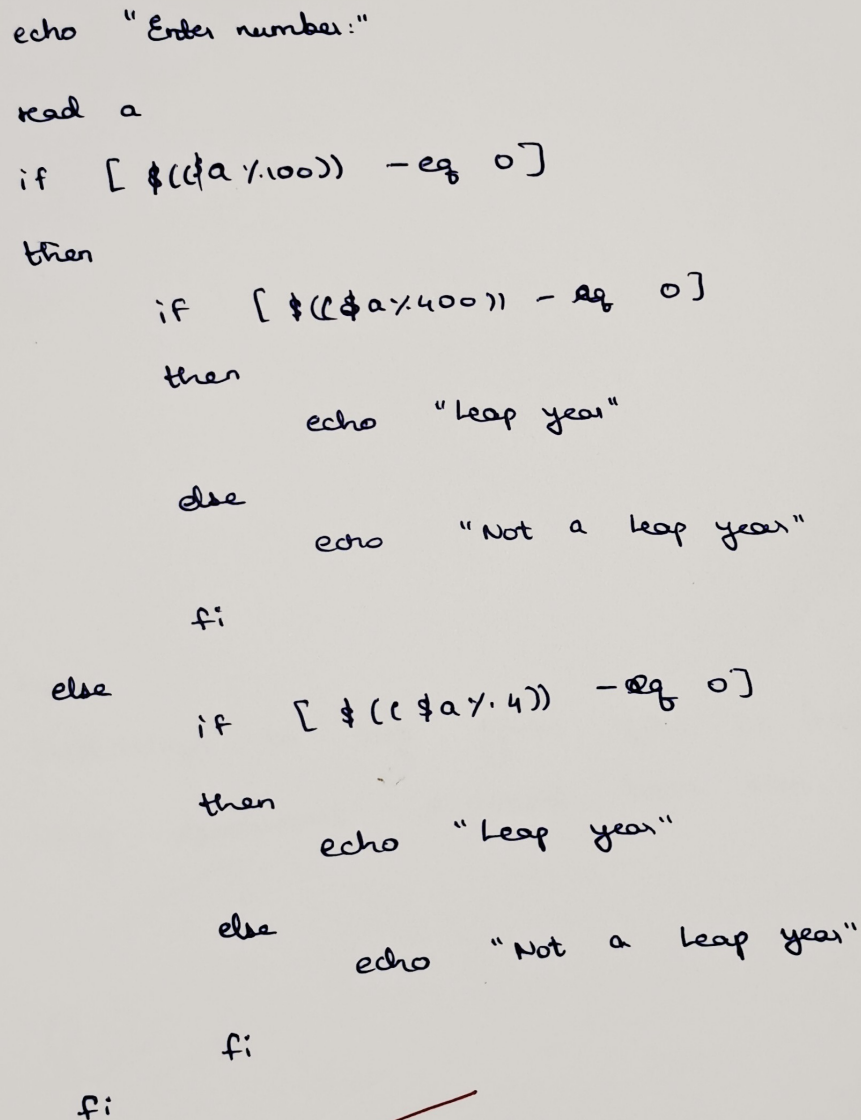 echo "Enter number:"
read a
if [ $(($a %100)) -eq 0]
then
if [ $(($a%400)) -eq 0]
then
echo "Leap year"
else
echo "Not a leap year"
fi
else
if [ $(($a%4)) -eq 0]
then
echo "Leap year"
else
echo "Not a Leap year"
fi
fi